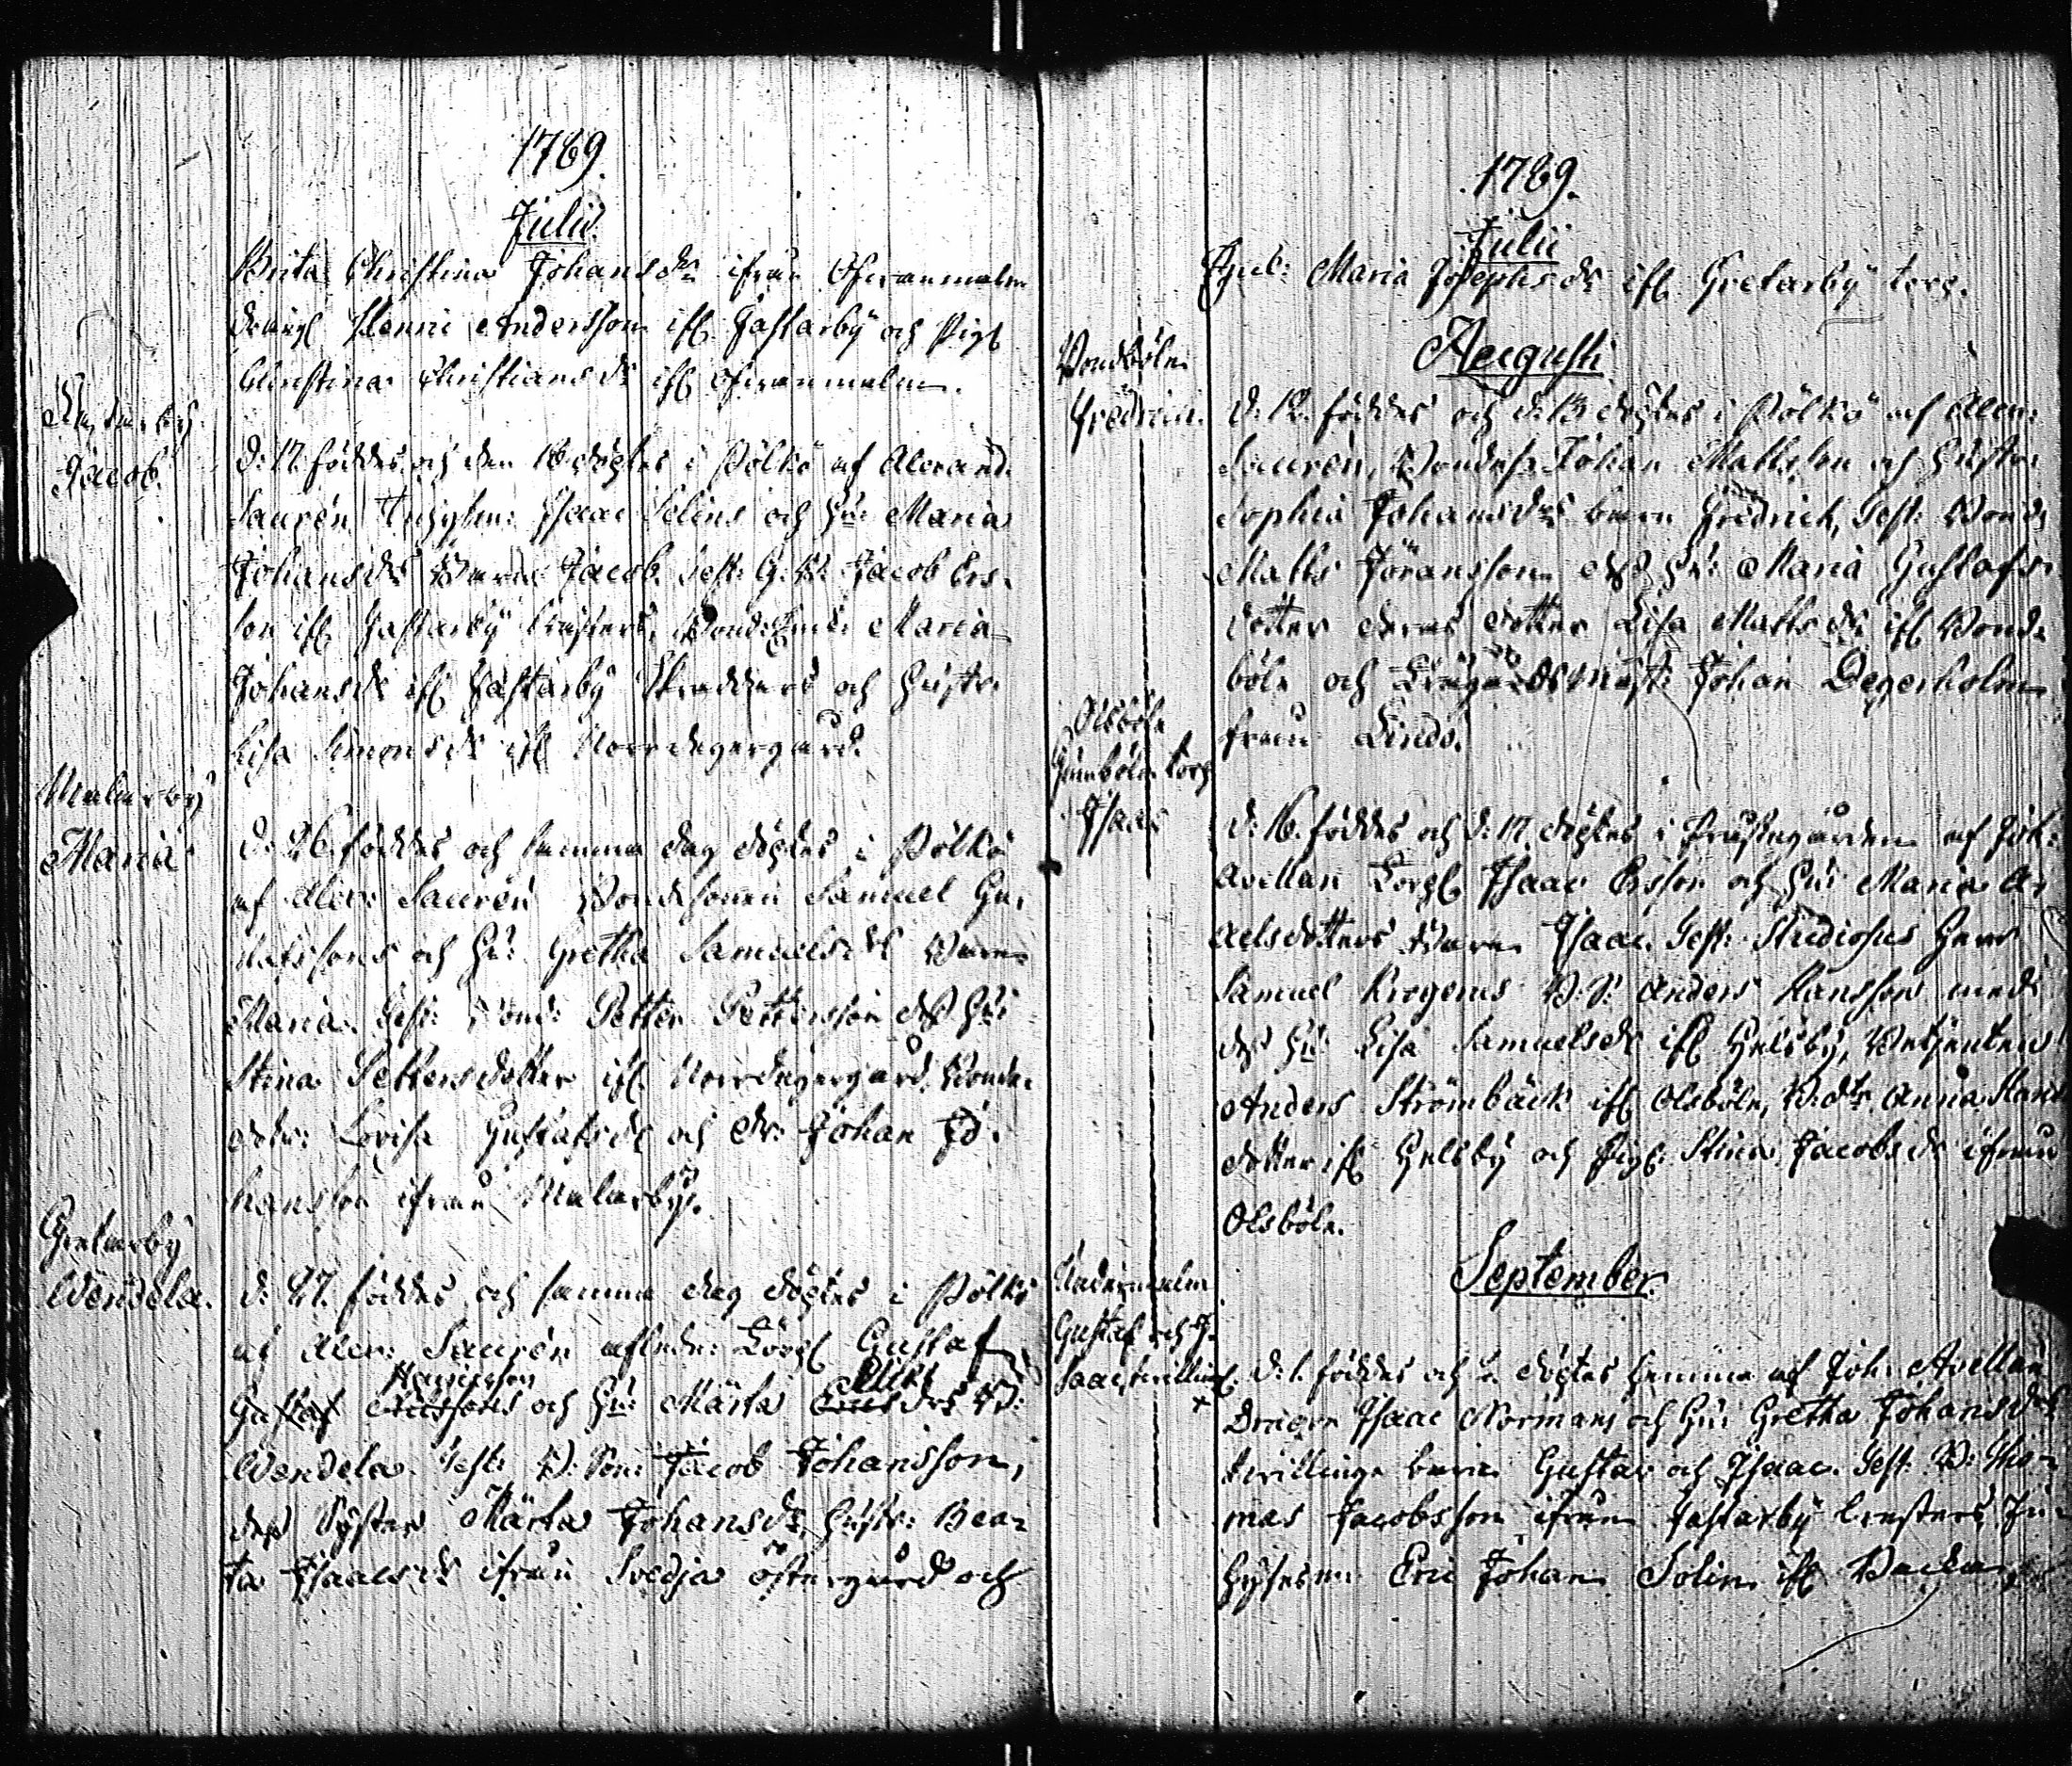 1789.
Julii
Brita Christina Johansdr ifrån Ofvanmalm
drängl Henric Andersson ifl Hastarby och Pigl
Christina Christians dr ifl Ofvanmalm.
Jacob.
d: 17. föddes och den 18 döptes i Pölkö af Alexand.
Laurén Inhyses: Isaac Solins och Hu: Maria
Johans drs Barn Jacob. Test: G. B. Jacob Ers-
son ifl Hastarby Bond: Enk: Maria
Johans dr ifl Hastarby Skredders och Hustr:
Lisa Simons dr ifl Norrdegergård.
Malmarby
Maria
d: 26. föddes och samma dag döptes i Pölkö
af Alex: Laurén Bondesonen Samuel Gu-
stafssons och Hu: Gretha Samuels drs Barn
Maria. Test: Bond: Petter Pettersson dess Hu:
Stina Pettersdotter ifl Norrdegergård, Bonde-
dotr: Lovisa Gustafs dr och dr: Johan Jo-
hansson ifrån Malmarby.
Gretarby
Wendela.
d: 27. föddes och samma dag döptes i Pölkö
af Alex: Laurén afledn: Torpl Gustaf
Henricsson
Gustaf Ericssons och Hu: Märta Erics drs B:
Wendela. Test: B: Son: Jacob Johansson,
dess Syster Märta Johans dr, Hustr: Bea-
ta Isaacs dr ifrån Svedja östergård och
1789.
Julii
Maria Josephs dr ifl Gretarby torp.
Augusti
Bondböle
Fredrich.
d: 12. föddes och d: 13 döptes i Pölkö af Alex:
Laurén, Bondes: Johan Mattsson och Hustr:
Sophia Johansdrs barn Fredrich, Test: Bond:
Matts Jöransson dess Hu: Maria Gustafs-
dotter deras dotter Lisa Matts dr ifl Bond-
böle och mäst: Johan Degerholm
från Lindö.
Olsböle
Gumböle torp
Isaac
d: 16. föddes och d: 17. döptes i Prästegården af Joh:
Avellan Torpl Isaac Ersson och Hu: Maria A-
xelsdotters Barn Isaac. Test: Studiosus Herr
Samuel Krogerus B: S: Anders Hansson med
dess Hu: Lisa Samuels dr ifl Helsby, Betjenten
Anders Strömbäck ifl Olsböle, B: dtr Anna Hans
dotter ifl Helsby och Pigl: Stina Jacobs dr ifrån
Olsböle.
September.
Nedermalm
Gustaf och I-
saac, tvilling.
d: 1. föddes och 2. döptes hemma af Joh: Avellan
Isaac Normans och Hu: Gretha Johans drs
tvillinge barn Gustav och Isaac. Test: B: Tho-
mas Jacobsson ifrån Hastarby In-
hyses: Eric Johan Solin ifl